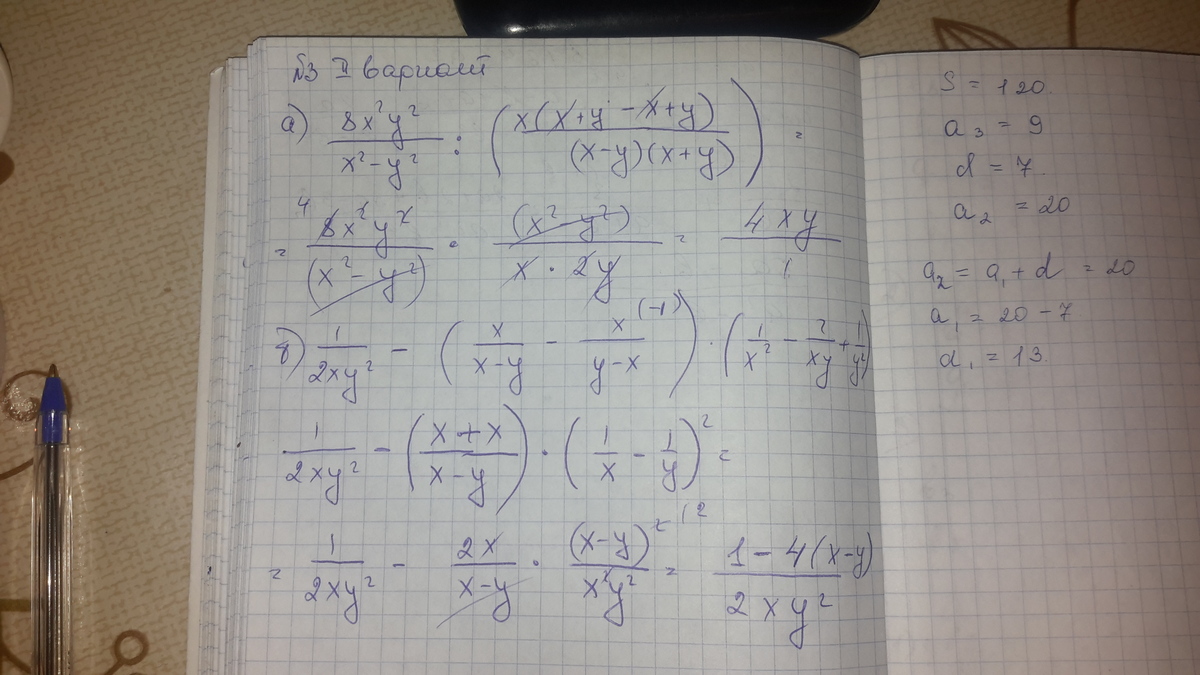 №3 II вариант
а) 8x²y² / x²-y² : ( x(x+y-x+y) / (x-y)(x+y) ) =
= 4 8x²y² / (x²-y²) · (x²-y²) / x·2y = 4xy / 1
б) 1 / 2xy² - ( x / x-y - x / y-x (-1) ) · ( 1 / x² - 2 / xy + 1 / y² )
1 / 2xy² - ( x+x / x-y ) · ( 1 / x - 1 / y )² =
= 1 / 2xy² - 2x / x-y · (x-y)² / x²y² = 1-4(x-y) / 2xy²
S = 120.
a₃ = 9
d = 7.
a₂ = 20
a₂ = a₁ + d = 20
a₁ = 20-7
d₁ = 13.